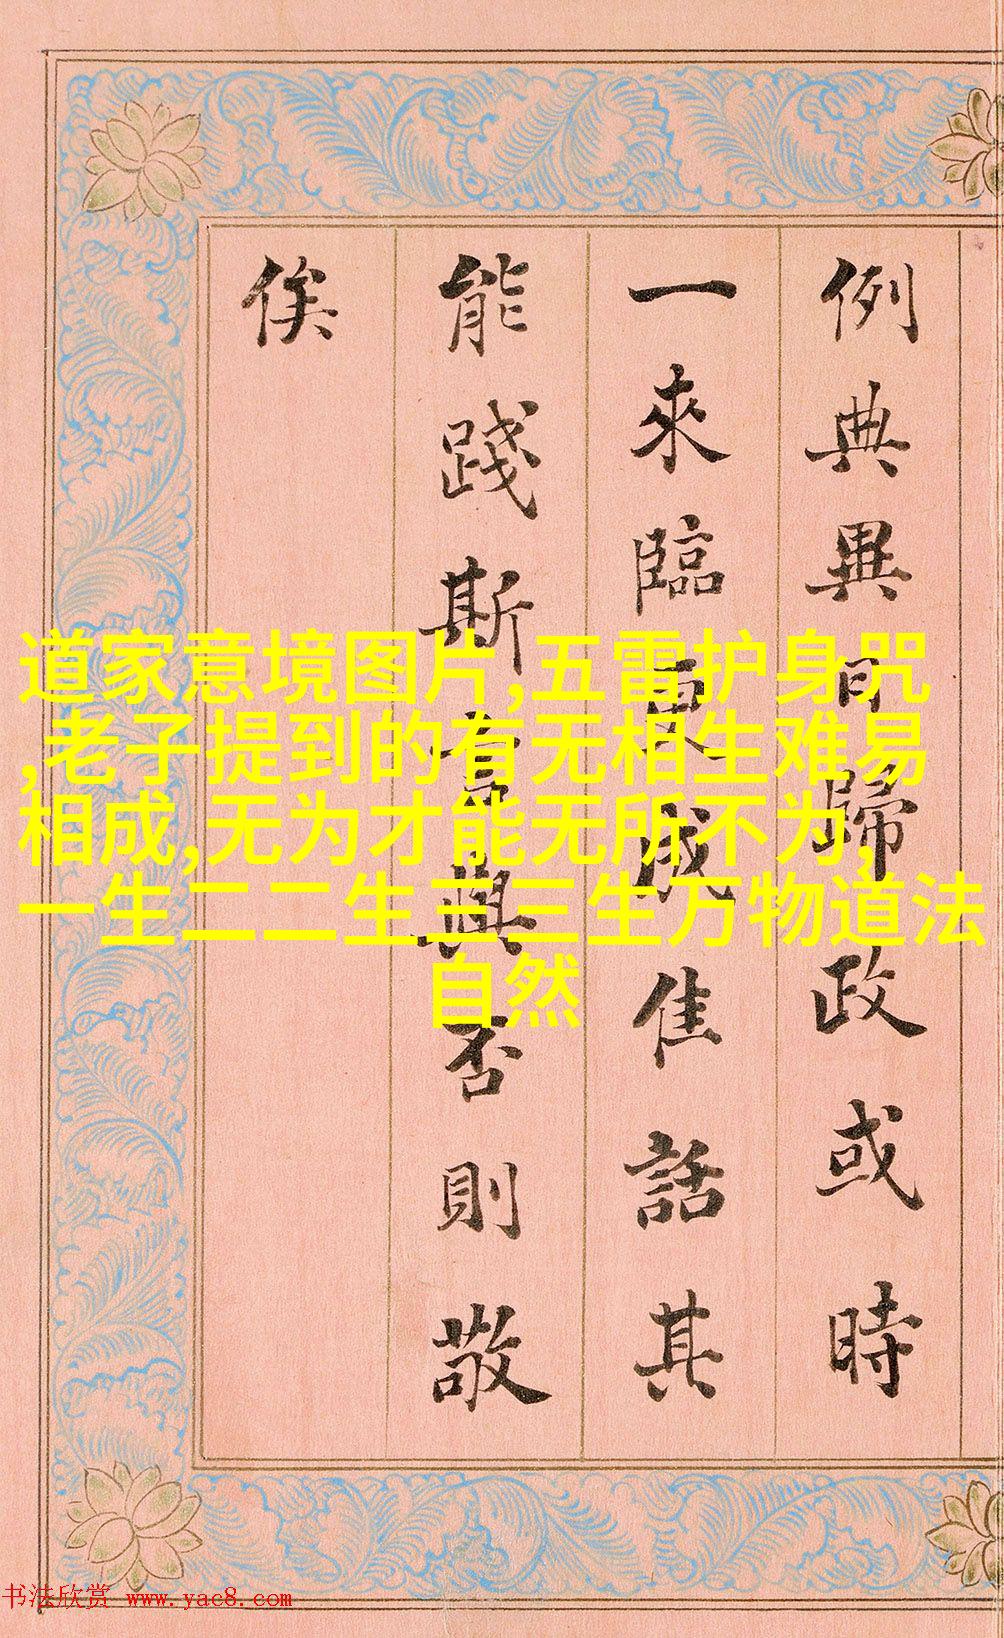 例典異日歸政或時
一來臨更成佳話其
能踐斯言與否則敬
俟
道家意境图片,五雷护身咒
,老子提到的有无相生难易
相成,无为才能无所不为,
一生二二生三三生万物道法
自然
书法欣赏 www.yac8.com